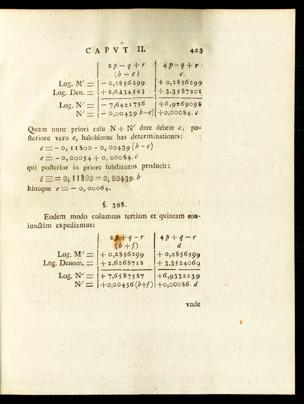 CAPVT II. 423
2p−q+r | 4p−q+r
(b−e) | c
Log. M′ = | −0,2856299 | +0,2856299
Log. Den. = | +2,6434543 | +3,3587201
Log. N′ = | −7,6421756 | +6,9269098
N′ = | −0,00439 b−e) | +0,00084. c
Quum nunc priori casu N + N′ dare debeat c, po-
steriore vero e, habebimus has determinationes:
c = −0,11800 − 0,00439 (b−e)
e = −0,00054 + 0,00084. c
qui posterior in priore substitutus producit:
c = −0,11800 − 0,00439. b
hincque e = −0,00064.
§. 398.
Eodem modo columnas tertiam et quintam con-
iunctim expediamus:
2p+q−r | 4p+q−r
(b+f) | d
Log. M′ = | +0,2856299 | +0,2856299
Log. Denom. = | +2,6268712 | +3,3524060
Log. N′ = | +7,6587587 | +6,9332239
N′ = | +0,00456(b+f) | +0,00086. d
vnde